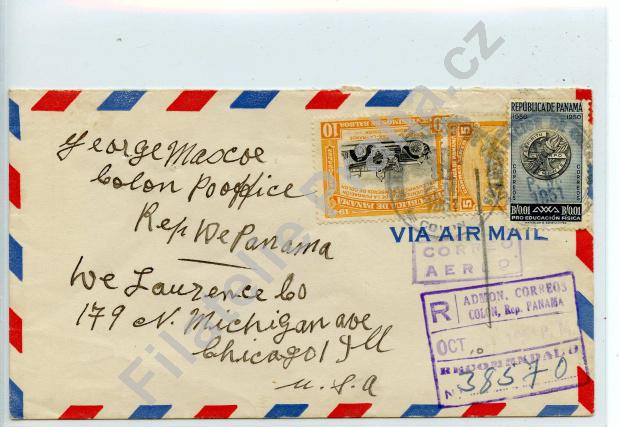 George Mascoe
Colon Pooffice
Rep De Panama
We Laurence Co
179 N. Michigan ave
Chicago 1 Ill
U.S.A
10
5
REPÚBLICA DE PANAMA
1950 1950
CORREOS CORREOS
B/0.01 B/0.01
PRO EDUCACIÓN FÍSICA
VIA AIR MAIL
CORREO
AEREO
R ADMON. CORREOS
COLON, Rep. PANAMA
OCT
RECOMENDADO
N. 38570
Filatelie
.cz